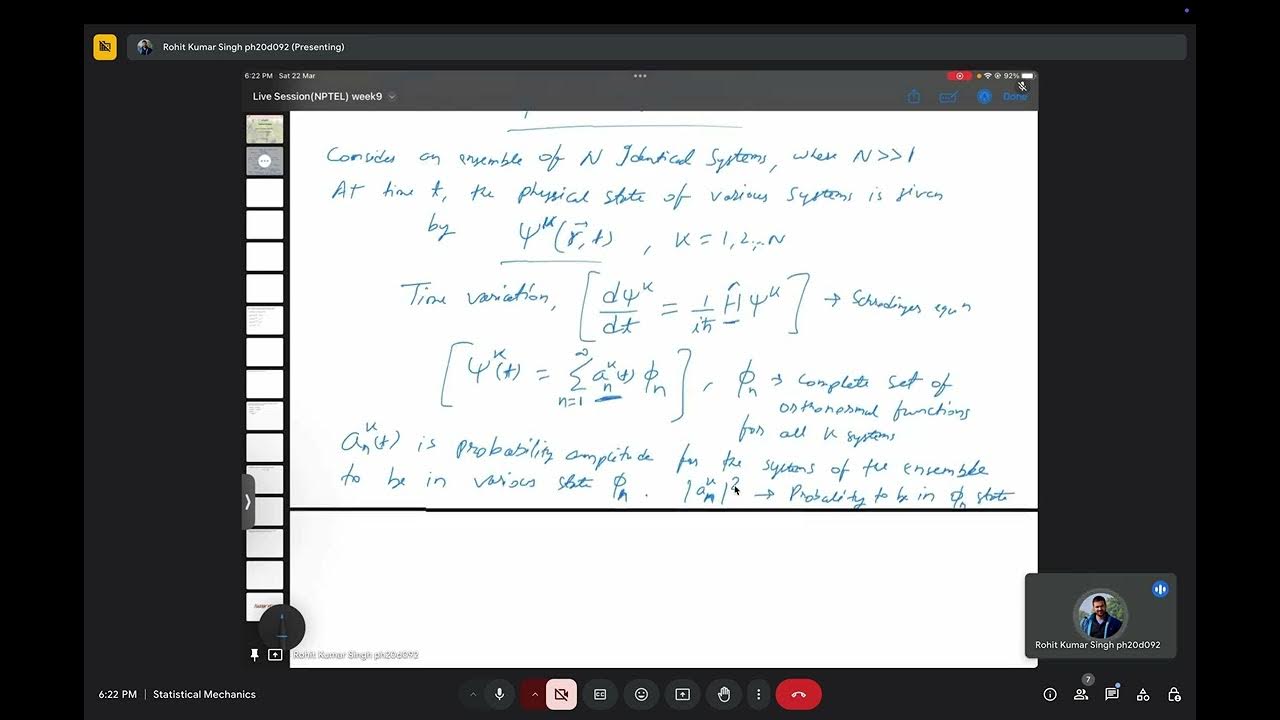 Rohit Kumar Singh ph20d092 (Presenting)
6:22 PM Sat 22 Mar
92%
Live Session(NPTEL) week9
Done
Consider an ensemble of N Identical Systems, where N>>1
At time t, the physical state of various systems is given
by ψᵏ(r⃗,t) , K = 1,2...N
Time variation, [dψᵏ/dt = 1/iħ Ĥ ψᵏ] → Schrodinger equn
[ψᵏ(t) = ∑ₙ₌₁^∞ aₙᵏ(t) ϕₙ] , ϕₙ → complete set of
orthonormal functions
for all K systems
aₙᵏ(t) is probability amplitude for the systems of the ensemble
to be in various state ϕₙ . |aₙᵏ|² → Probality to be in ϕₙ state
Rohit Kumar Singh ph20d092
Rohit Kumar Singh ph20d092
6:22 PM | Statistical Mechanics
7